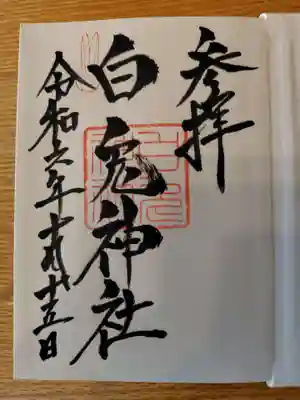 参拝
白兎神社
令和六年十月廿五日